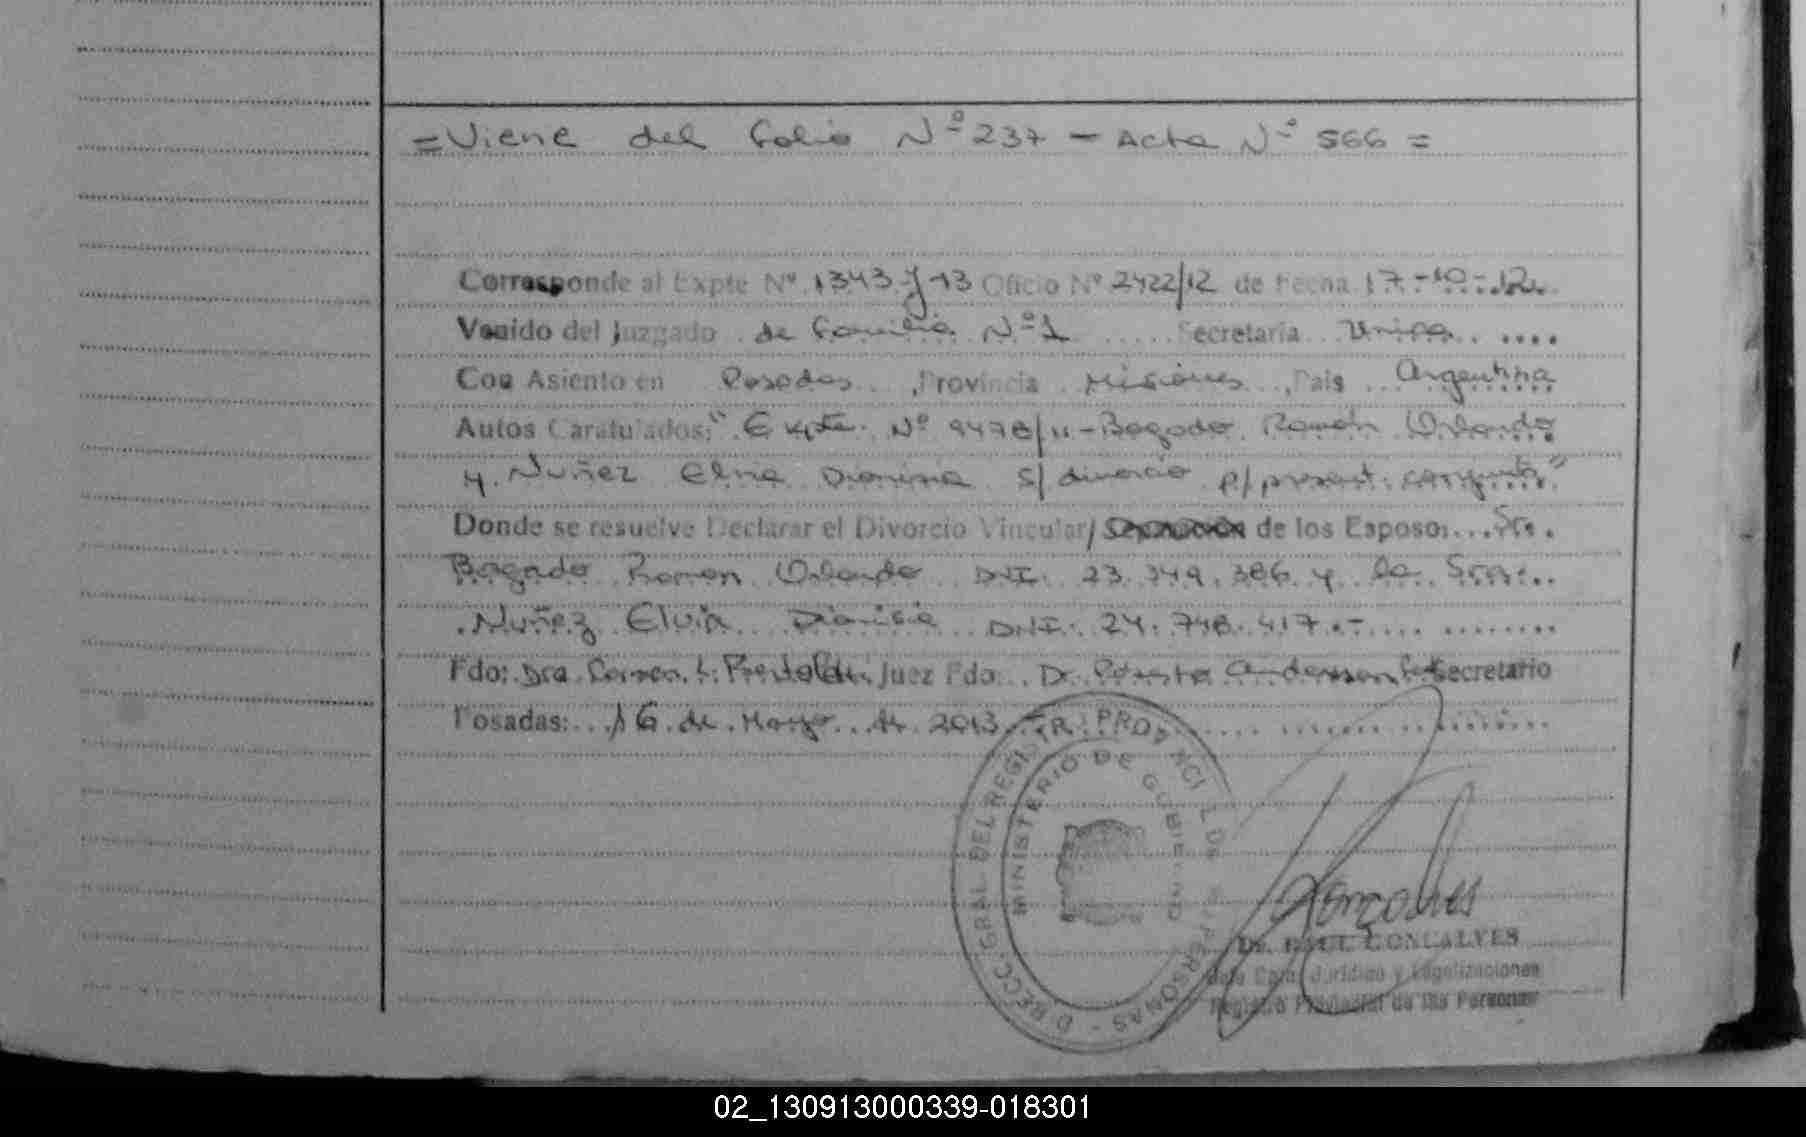 = Viene del folio Nº 237 - Acta Nº 566 =
Corresponde al Expte Nº 1343 y 13 Oficio Nº 2422/12 de Fecha 17-10-12
Venido del Juzgado de Familia Nº 1 Secretaría Unica
Con Asiento en Posadas, Provincia Misiones, País Argentina
Autos Caratulados: "Expte. Nº 9478/11 - Bogado Ramón Orlando
y Nuñez Elvia Dionisia s/ divorcio p/ present. conjunta"
Donde se resuelve Declarar el Divorcio Vincular/ de los Esposos: Sr.
Bogado Ramon Orlando DNI. 23.349.386 y la Sra.
Nuñez Elvia Dionisia DNI. 24.748.417.-
Fdo: Dra. Carmen Juez Fdo. Dr. Secretario
Posadas: 16 de Mayo de 2013
DIRECC. GRAL DEL REGISTR. PROVINCIAL DE PERSONAS
MINISTERIO DE GOBIERNO
Gonçalves
Dr. RAUL GONCALVES
Jurídico y Legalizaciones
Registro Provincial de las Personas
02_130913000339-018301